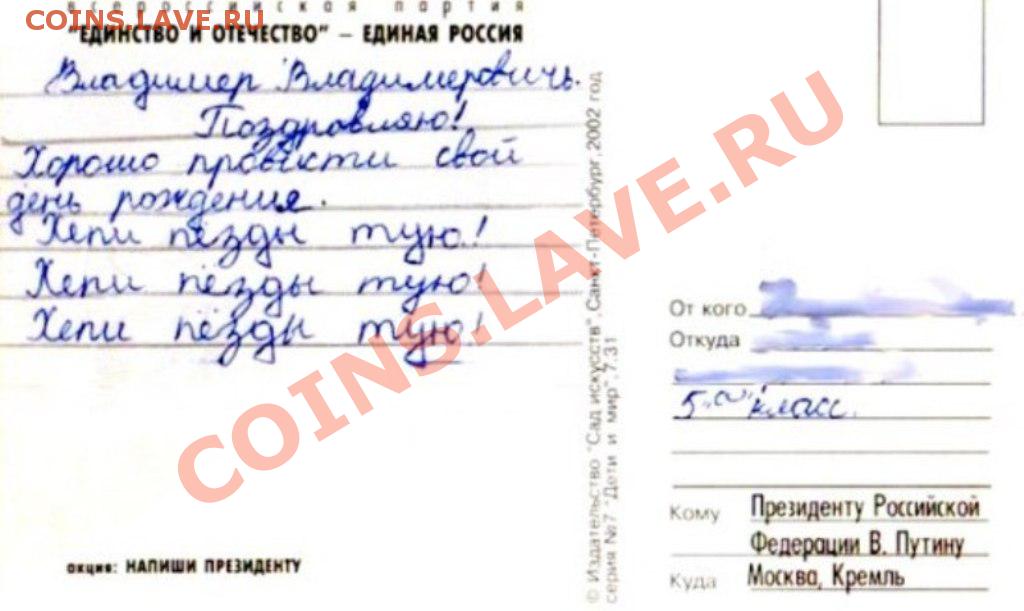 COINS.LAVE.RU
всероссийская партия
"ЕДИНСТВО И ОТЕЧЕСТВО" – ЕДИНАЯ РОССИЯ
Владимер Владимеровичь.
Поздровляю!
Хорошо провкти свой
день рождения.
Хепи пёзды тую!
Хепи пёзды тую!
Хепи пёзды тую!
акция: НАПИШИ ПРЕЗИДЕНТУ
© Издательство "Сад искусств", Санкт-Петербург, 2002 год
серия №7 "Дети и мир", 7.31
COINS.LAVE.RU
От кого
Откуда
5 "а" класс.
Кому Президенту Российской
Федерации В. Путину
Куда Москва, Кремль